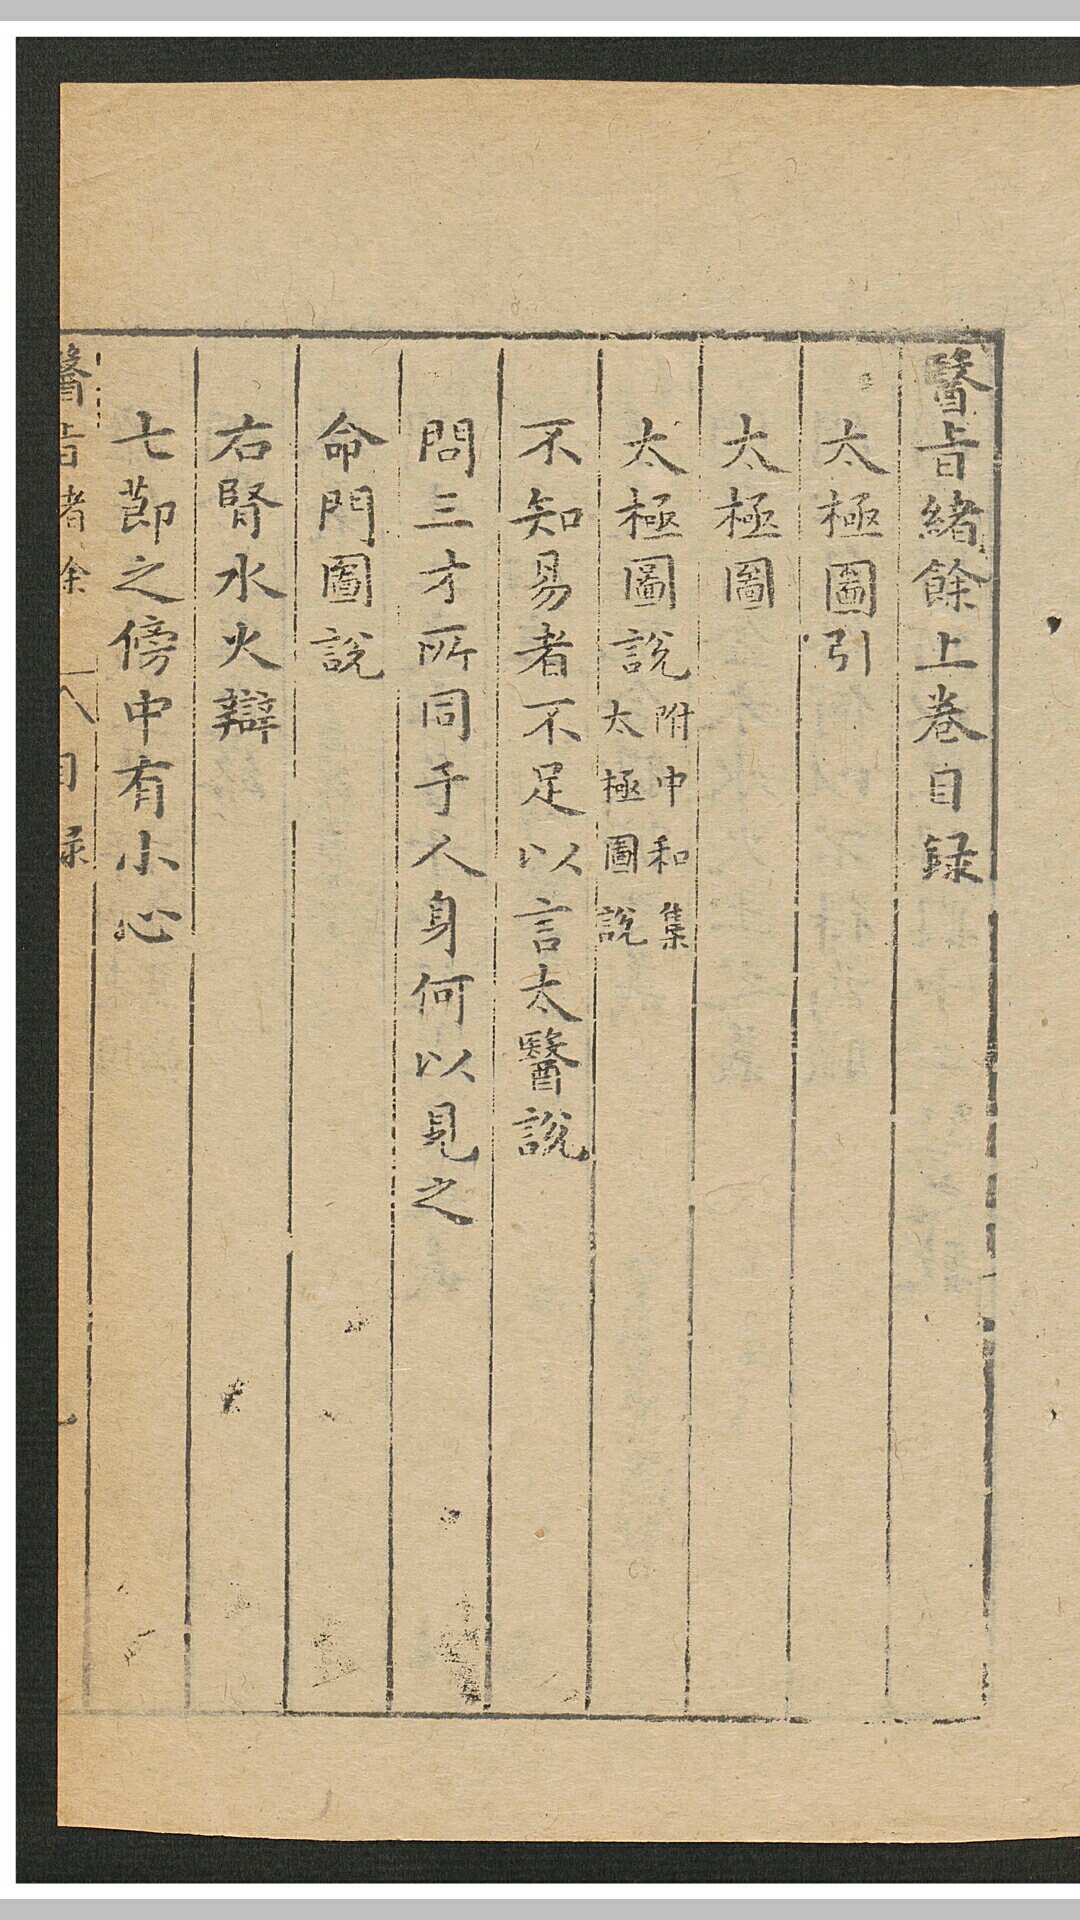 醫旨緒餘上卷目録
太極圖引
太極圖
太極圖說 附中和集
太極圖說
不知易者不足以言太醫說
問三才所同于人身何以見之
命門圖說
右腎水火辯
七節之傍中有小心
醫旨緒餘 目録